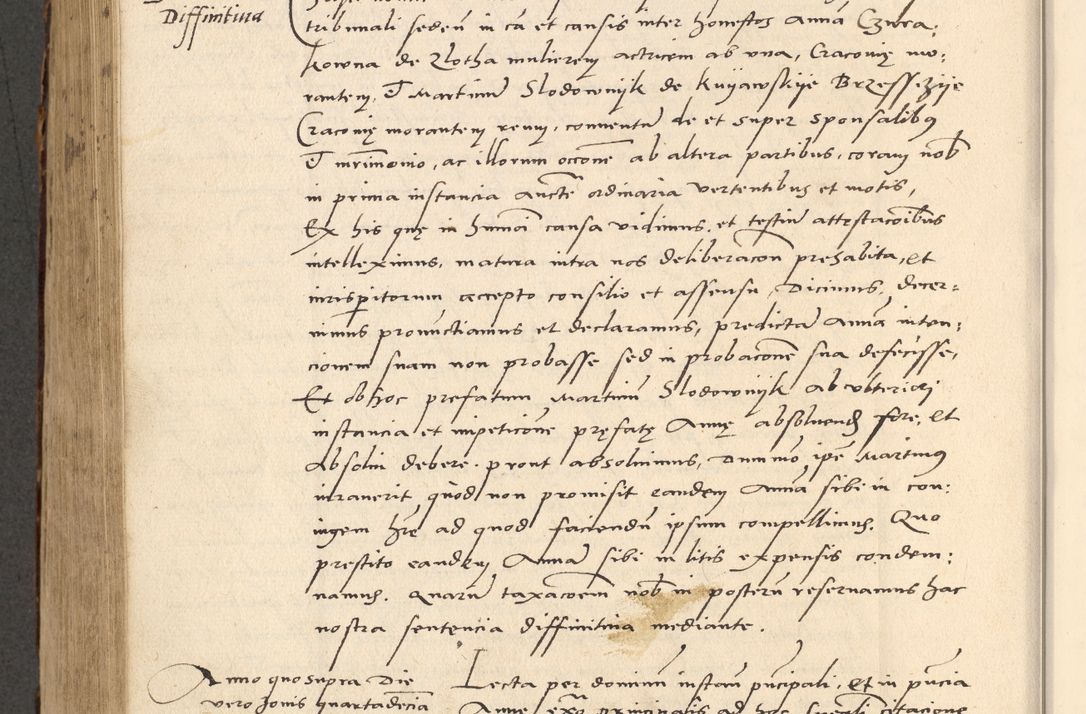 Diffinitiua
tribunali seden in ca et causis inter honestos Annā Czura:
kowna de Zlotha mulierem actricem ab vna, Cracouię mo:
rantem, & Martinū Slodownijk de Kuyawskije Brzesscziije
Cracouię morantem reum, conuentū de et super sponsalibus
& mrimonio, ac illorum occōne ab altera partibus, coram nob
in prima instancia auctē ordinaria vertentibus et motis,
Ex his quę in hmōi causa vidimus, et testiū attestacōibus
intelleximus, matura intra nos deliberacōn prehabita, et
iurisperitorum accepto consilio et assensu, Dicimus, decer:
nimus pronūctiamus et declaramus, predictā Annā inten:
cionem suam non probasse sed in probacōne sua defecisse,
Et ob hoc prefatum Martinū Slodownijk ab vlteriori
instancia et impeticōne pręfatę Annę absoluendū fore, et
absolui debere. prout absoluimus, Dummo ipē Martinus
iurauerit, quod non promisit eandem Annā sibi in con:
iugem hrē ad quod faciendū ipsum compellimus. Quo
prestito eandem Annā sibi in litis expensis condem:
namus. quarū taxacōem nob in posterū reseruamus hac
nostra sentencia diffinitiua mediante.
Anno quo supra Die
vero Jouis quartadecīa
Lecta per dominum instan pncipali, et in pncia
Annę